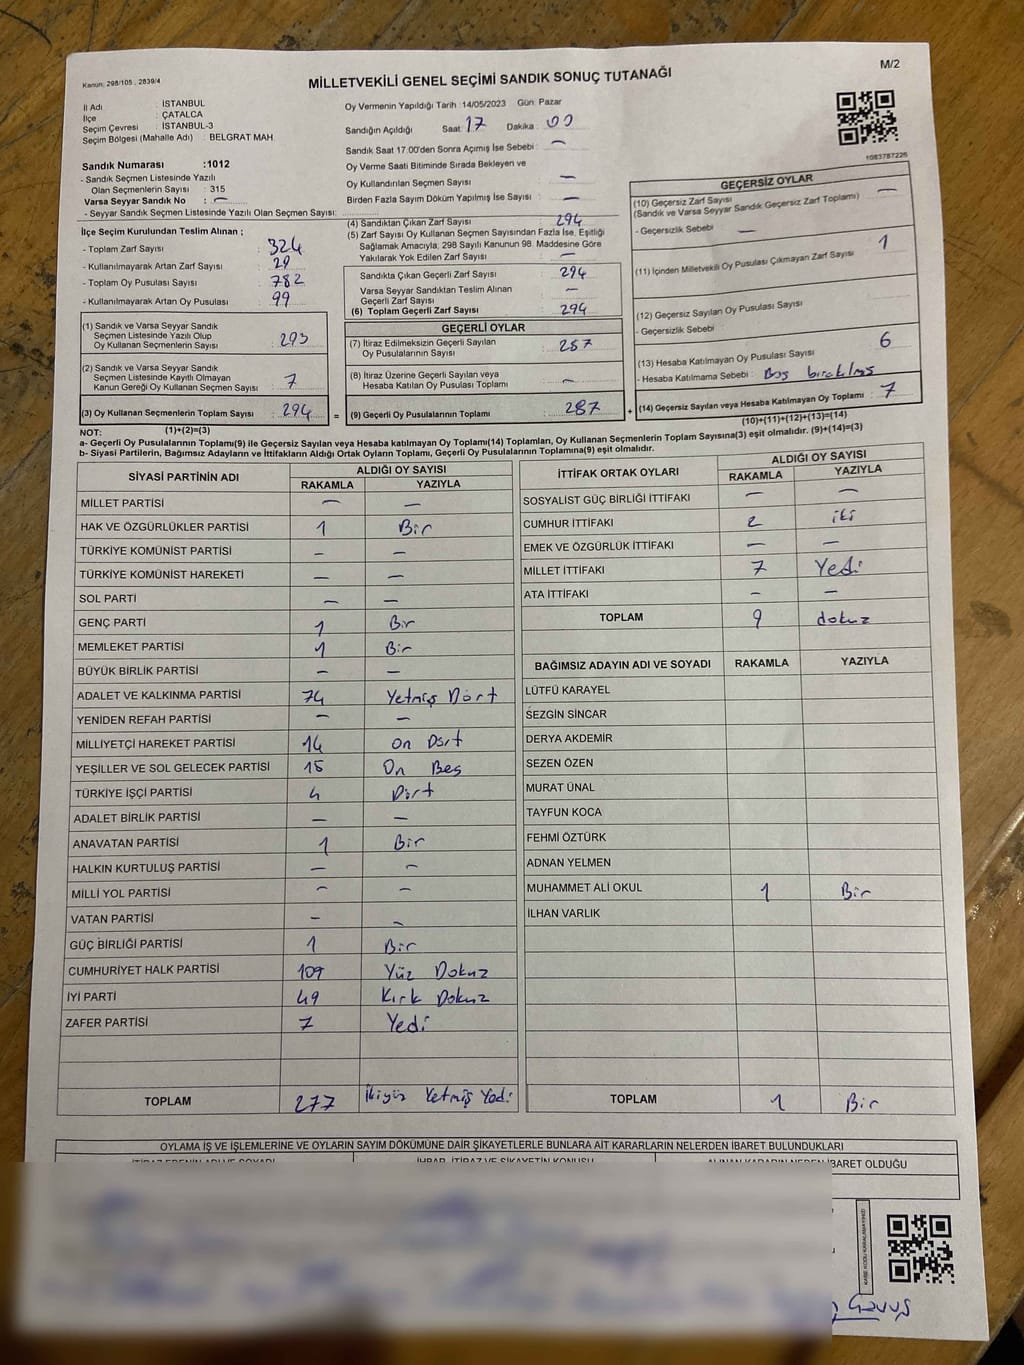 Kanun: 298/105 , 2839/4
MİLLETVEKİLİ GENEL SEÇİMİ SANDIK SONUÇ TUTANAĞI
M/2
İl Adı : İSTANBUL
İlçe : ÇATALCA
Seçim Çevresi : İSTANBUL-3
Seçim Bölgesi (Mahalle Adı) : BELGRAT MAH.
Sandık Numarası :1012
- Sandık Seçmen Listesinde Yazılı
Olan Seçmenlerin Sayısı : 315
Varsa Seyyar Sandık No : —
- Seyyar Sandık Seçmen Listesinde Yazılı Olan Seçmen Sayısı:
İlçe Seçim Kurulundan Teslim Alınan ;
- Toplam Zarf Sayısı : 324
- Kullanılmayarak Artan Zarf Sayısı : 29
- Toplam Oy Pusulası Sayısı : 782
- Kullanılmayarak Artan Oy Pusulası : 99
(1) Sandık ve Varsa Seyyar Sandık
Seçmen Listesinde Yazılı Olup
Oy Kullanan Seçmenlerin Sayısı : 293
(2) Sandık ve Varsa Seyyar Sandık
Seçmen Listesinde Kayıtlı Olmayan
Kanun Gereği Oy Kullanan Seçmen Sayısı : 7
(3) Oy Kullanan Seçmenlerin Toplam Sayısı : 294 =
Oy Vermenin Yapıldığı Tarih :14/05/2023 Gün: Pazar
Sandığın Açıldığı Saat: 17 Dakika : 00
Sandık Saat 17.00'den Sonra Açımış İse Sebebi : —
Oy Verme Saati Bitiminde Sırada Bekleyen ve
Oy Kullandırılan Seçmen Sayısı : —
Birden Fazla Sayım Döküm Yapılmış İse Sayısı : —
(4) Sandıktan Çıkan Zarf Sayısı : 294
(5) Zarf Sayısı Oy Kullanan Seçmen Sayısından Fazla İse, Eşitliği
Sağlamak Amacıyla, 298 Sayılı Kanunun 98. Maddesine Göre
Yakılarak Yok Edilen Zarf Sayısı : —
Sandıkta Çıkan Geçerli Zarf Sayısı : 294
Varsa Seyyar Sandıktan Teslim Alınan
Geçerli Zarf Sayısı : —
(6) Toplam Geçerli Zarf Sayısı : 294
GEÇERLİ OYLAR
(7) İtiraz Edilmeksizin Geçerli Sayılan
Oy Pusulalarının Sayısı : 257
(8) İtiraz Üzerine Geçerli Sayılan veya
Hesaba Katılan Oy Pusulası Toplamı : —
(9) Geçerli Oy Pusulalarının Toplamı : 287 +
1083787226
GEÇERSİZ OYLAR
(10) Geçersiz Zarf Sayısı : —
(Sandık ve Varsa Seyyar Sandık Geçersiz Zarf Toplamı)
- Geçersizlik Sebebi : —
(11) İçinden Milletvekili Oy Pusulası Çıkmayan Zarf Sayısı : 1
(12) Geçersiz Sayılan Oy Pusulası Sayısı :
- Geçersizlik Sebebi :
(13) Hesaba Katılmayan Oy Pusulası Sayısı : 6
- Hesaba Katılmama Sebebi : Boş bırakılmış
(14) Geçersiz Sayılan veya Hesaba Katılmayan Oy Toplamı : 7
NOT: (1)+(2)=(3) (10)+(11)+(12)+(13)=(14)
a- Geçerli Oy Pusulalarının Toplamı(9) ile Geçersiz Sayılan veya Hesaba katılmayan Oy Toplamı(14) Toplamları, Oy Kullanan Seçmenlerin Toplam Sayısına(3) eşit olmalıdır. (9)+(14)=(3)
b- Siyasi Partilerin, Bağımsız Adayların ve İttifakların Aldığı Ortak Oyların Toplamı, Geçerli Oy Pusulalarının Toplamına(9) eşit olmalıdır.
SİYASİ PARTİNİN ADI ALDIĞI OY SAYISI
RAKAMLA YAZIYLA
MİLLET PARTİSİ — —
HAK VE ÖZGÜRLÜKLER PARTİSİ 1 Bir
TÜRKİYE KOMÜNİST PARTİSİ — —
TÜRKİYE KOMÜNİST HAREKETİ — —
SOL PARTİ — —
GENÇ PARTİ 1 Bir
MEMLEKET PARTİSİ 1 Bir
BÜYÜK BİRLİK PARTİSİ — —
ADALET VE KALKINMA PARTİSİ 74 Yetmiş Dört
YENİDEN REFAH PARTİSİ — —
MİLLİYETÇİ HAREKET PARTİSİ 14 On Dört
YEŞİLLER VE SOL GELECEK PARTİSİ 15 On Beş
TÜRKİYE İŞÇİ PARTİSİ 4 Dört
ADALET BİRLİK PARTİSİ — —
ANAVATAN PARTİSİ 1 Bir
HALKIN KURTULUŞ PARTİSİ — —
MİLLİ YOL PARTİSİ — —
VATAN PARTİSİ — —
GÜÇ BİRLİĞİ PARTİSİ 1 Bir
CUMHURİYET HALK PARTİSİ 109 Yüz Dokuz
İYİ PARTİ 49 Kırk Dokuz
ZAFER PARTİSİ 7 Yedi
TOPLAM 277 İkiyüz Yetmiş Yedi
İTTİFAK ORTAK OYLARI ALDIĞI OY SAYISI
RAKAMLA YAZIYLA
SOSYALİST GÜÇ BİRLİĞİ İTTİFAKI — —
CUMHUR İTTİFAKI 2 iki
EMEK VE ÖZGÜRLÜK İTTİFAKI — —
MİLLET İTTİFAKI 7 Yedi
ATA İTTİFAKI — —
TOPLAM 9 dokuz
BAĞIMSIZ ADAYIN ADI VE SOYADI RAKAMLA YAZIYLA
LÜTFÜ KARAYEL
SEZGİN SİNCAR
DERYA AKDEMİR
SEZEN ÖZEN
MURAT ÜNAL
TAYFUN KOCA
FEHMİ ÖZTÜRK
ADNAN YELMEN
MUHAMMET ALİ OKUL 1 Bir
İLHAN VARLIK
TOPLAM 1 Bir
OYLAMA İŞ VE İŞLEMLERİNE VE OYLARIN SAYIM DÖKÜMÜNE DAİR ŞİKAYETLERLE BUNLARA AİT KARARLARIN NELERDEN İBARET BULUNDUKLARI
İTİRAZ EDENİN ADI VE SOYADI İHBAR, İTİRAZ VE ŞİKAYETİN KONUSU ALINAN KARARIN NEDEN İBARET OLDUĞU